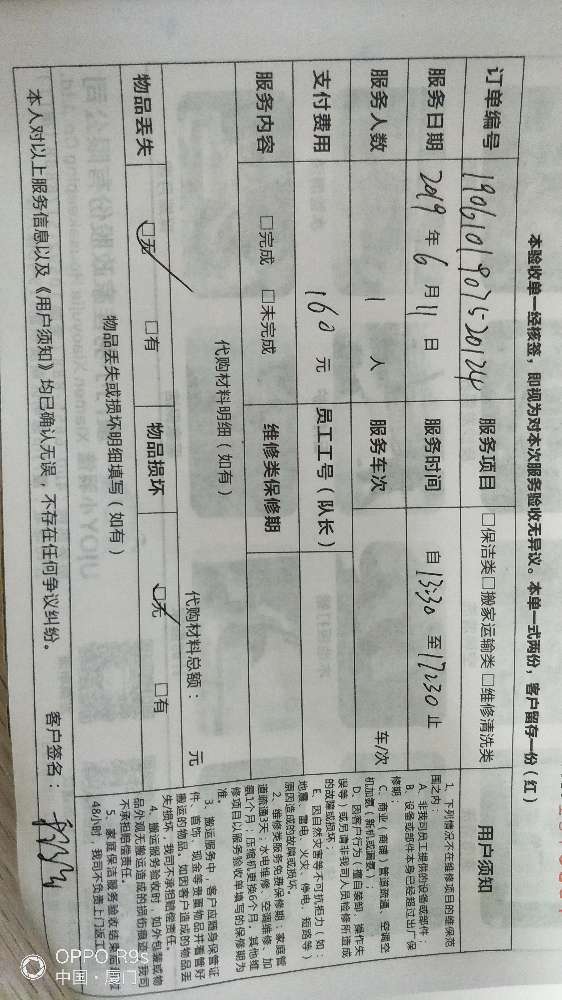 本验收单一经核签，即视为对本次服务验收无异议。本单一式两份，客户留存一份（红）
订单编号 190610190752 0124 服务项目 □保洁类□搬家运输类 □维修清洗类
服务日期 2019 年 6 月 11 日 服务时间 自 13:30 至 17:30 止
服务人数 1 人 服务车次 车/次
支付费用 160 元 员工工号（队长）
服务内容 □完成 □未完成 维修类保修期
代购材料明细（如有）
代购材料总额： 元
物品丢失 □无 □有 物品损坏 □无 □有
物品丢失或损坏明细填写（如有）
本人对以上服务信息以及《用户须知》均已确认无误，不存在任何争议纠纷。 客户签名：
用户须知
1、下列情况不在维修项目的维保范
围之内：
A、非我司员工提供的设备或部件；
B、设备或部件本身已经超过出厂保
修期；
C、商业（商铺）管道疏通、空调空
机加氨（新机或漏氨）；
D、因客户行为（擅自装卸、操作失
误等）或另请非我司人员检修所造成
的故障或损坏；
E、因自然灾害等不可抗拒力（如：
地震、雷电、火灾、停电、短路等）
原因造成的故障或损坏。
2、维修类服务免费保修期：家庭管
道疏通3天，水电维修、空调维修、加
氨1个月；压缩机更换6个月；其他维
修项目以服务验收单填写的保修期为
准。
3、搬运服务中，客户应随身保管证
件、首饰、现金等贵重物品并看管好
搬运的物品，如因客户造成的物品丢
失/损坏，我司不承担赔偿责任。
4、搬运服务验收时，如外包装或物
品外观无搬运造成的损伤痕迹，我司
不承担赔偿责任。
5、家庭保洁服务验收结束
48小时，我司不负责上门返工
OPPO R9s
中国·厦门